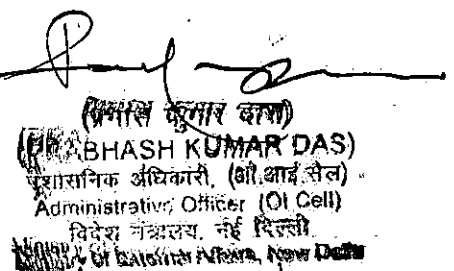 (प्रभास कुमार दास)
(PRABHASH KUMAR DAS)
प्रशासनिक अधिकारी, (ओ.आई.सैल)
Administrative Officer (OI Cell)
विदेश मंत्रालय, नई दिल्ली
Ministry Of External Affairs, New Delhi